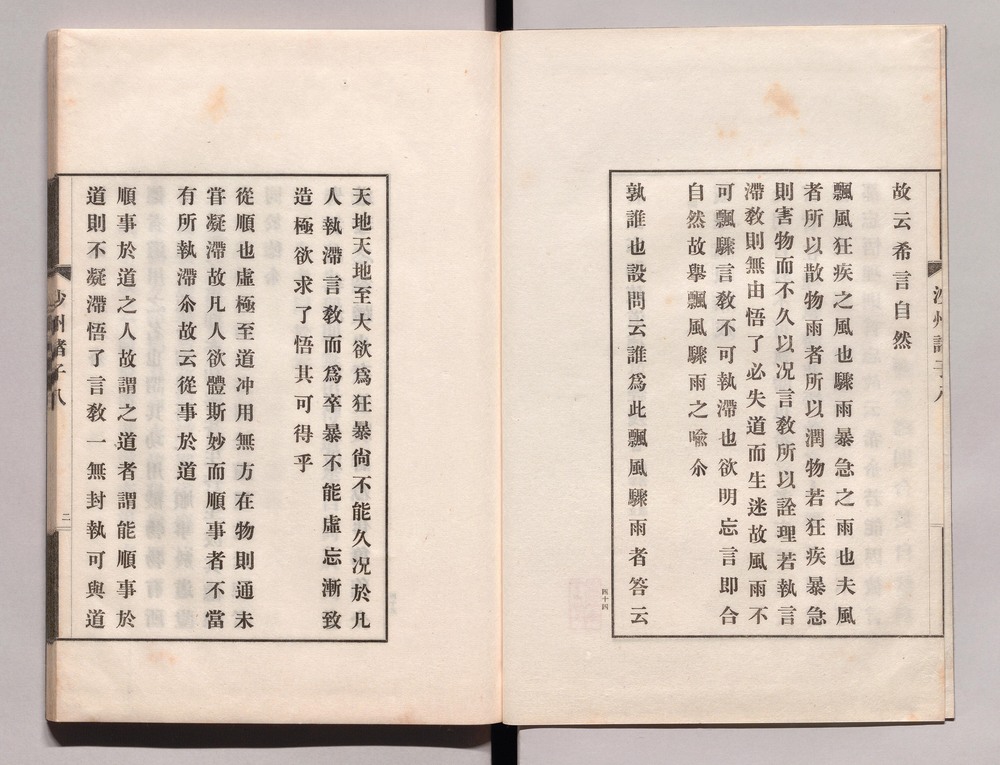 故云希言自然
飄風狂疾之風也驟雨暴急之雨也夫風
者所以散物雨者所以潤物若狂疾暴急
則害物而不久以况言教所以詮理若執言
滯教則無由悟了必失道而生迷故風雨不
可飄驟言教不可執滯也欲明忘言即合
自然故舉飄風驟雨之喻尒
孰誰也設問云誰為此飄風驟雨者答云
四十四
天地天地至大欲為狂暴尚不能久况於凡
人執滯言教而為卒暴不能虛忘漸致
造極欲求了悟其可得乎
從順也虛極至道冲用無方在物則通未
甞凝滯故凡人欲體斯妙而順事者不當
有所執滯尒故云從事於道
順事於道之人故謂之道者謂能順事於
道則不凝滯悟了言教一無封執可與道
子八
二